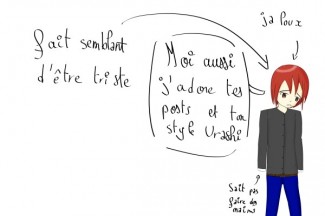 fait semblant
d'être triste
Moi aussi
j'adore tes
posts et ton
style Urashi
ja Poux
Sait pas
faire des
mains